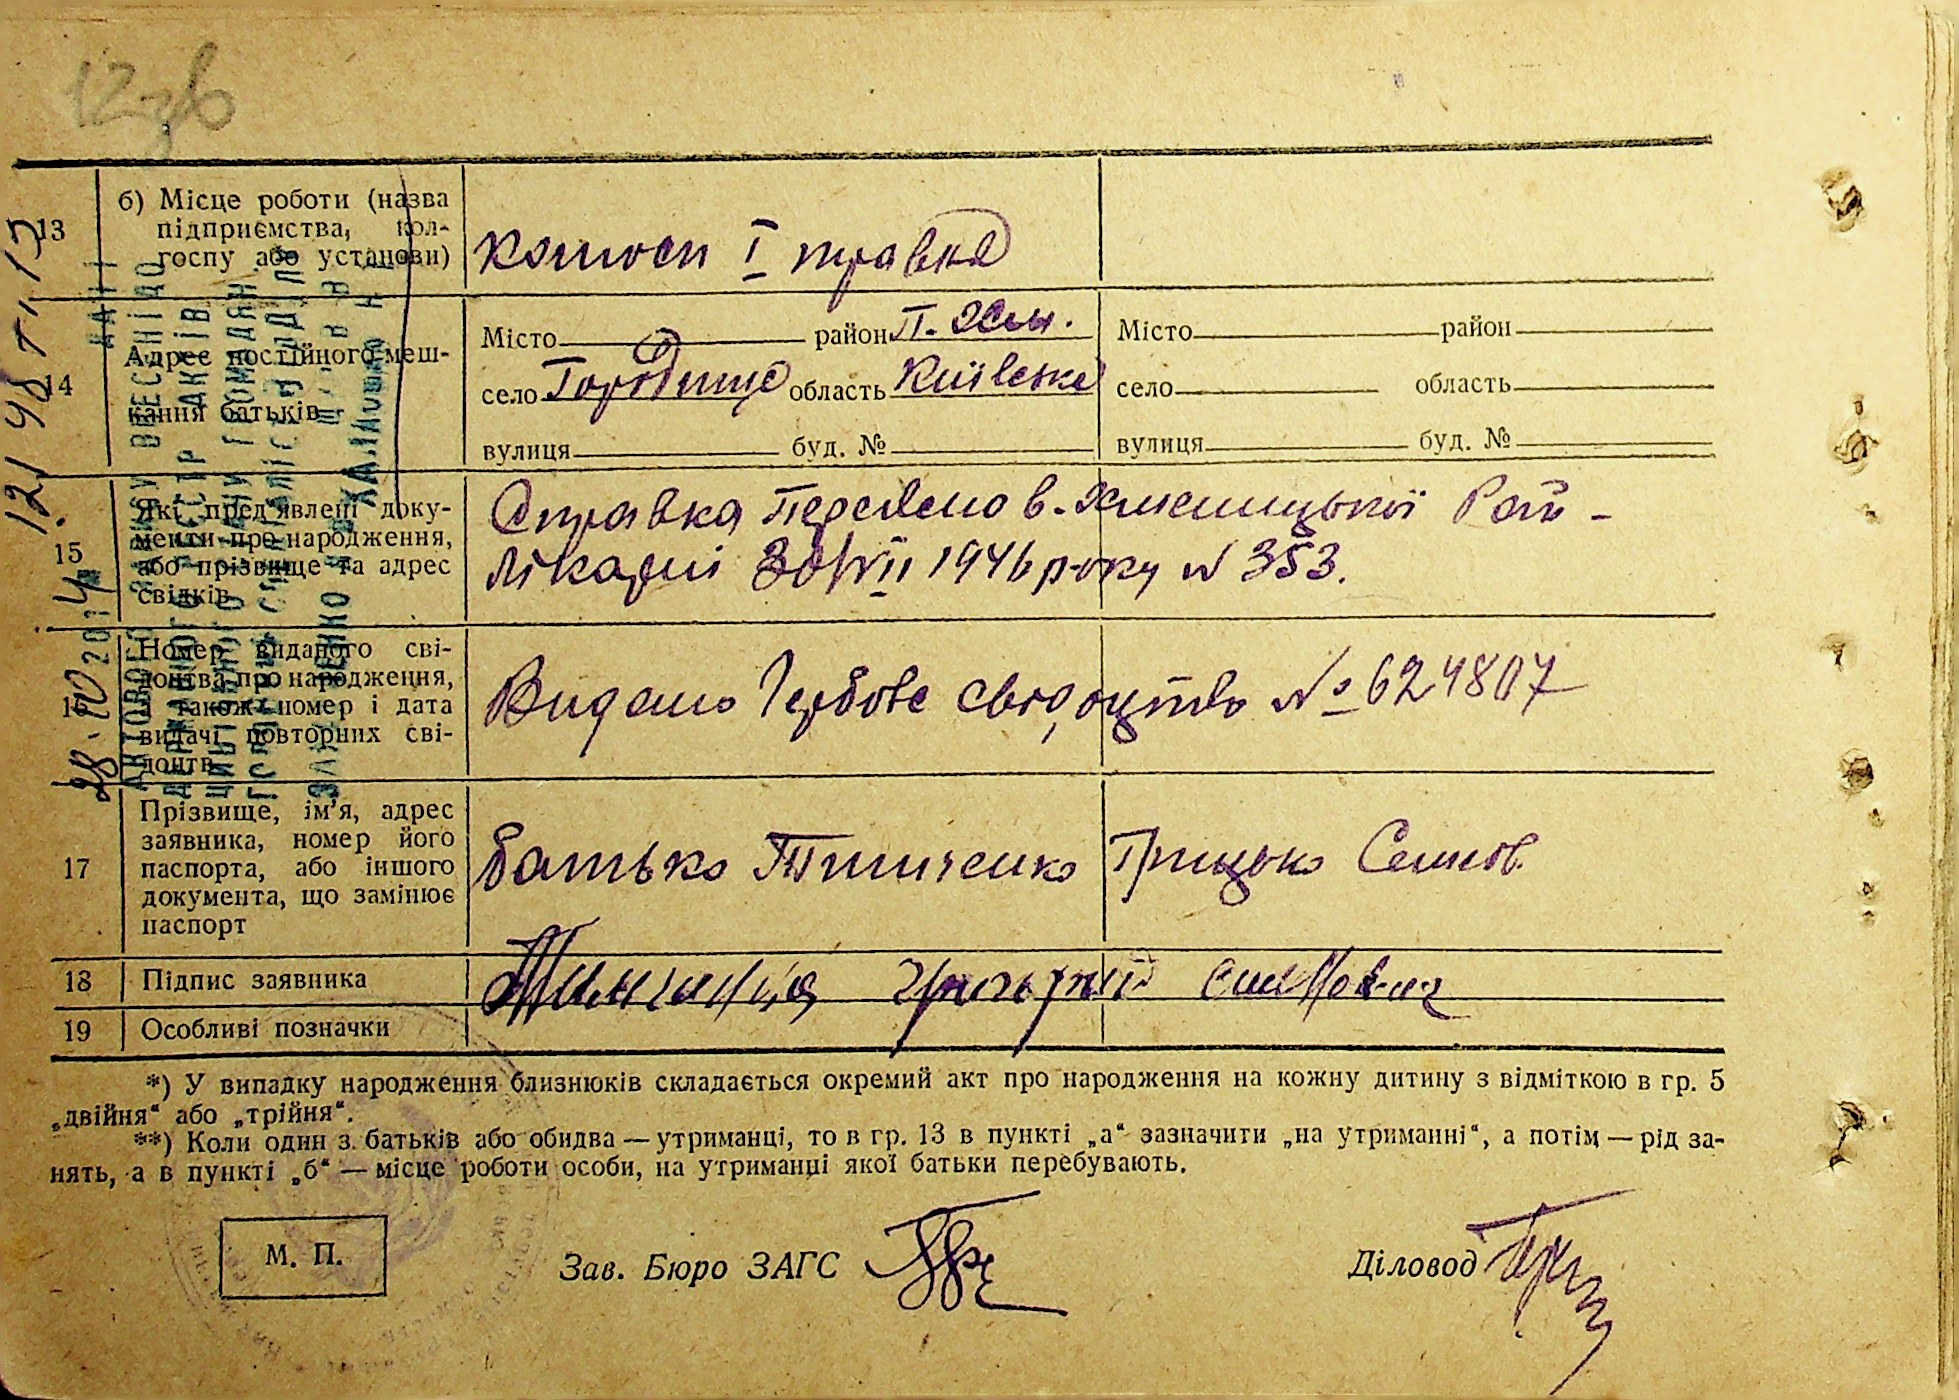 12 зв
13 б) Місце роботи (назва
підприємства, кол-
госпу або установи)
колгосп І травня
14 Адрес постійного меш-
кання батьків
Місто район П. Хм. Місто район
село Городище область Київська село область
вулиця буд. № вулиця буд. №
15 Які пред'явлені доку-
менти про народження,
або прізвище та адрес
свідків
Справка Переяслов-Хмельницької Рай-
лікарні 30/VII 1946 року N 353.
16 Номер виданого сві-
доцтва про народження,
а також номер і дата
видачі повторних сві-
доцтв
Видано Гербове свідоцтво № 624807
17 Прізвище, ім'я, адрес
заявника, номер його
паспорта, або іншого
документа, що замінює
паспорт
батько Тимченко Грицько Семнов.
18 Підпис заявника
19 Особливі позначки
*) У випадку народження близнюків складається окремий акт про народження на кожну дитину з відміткою в гр. 5
„двійня“ або „трійня“.
**) Коли один з батьків або обидва — утриманці, то в гр. 13 в пункті „а“ зазначити „на утриманні“, а потім — рід за-
нять, а в пункті „б“ — місце роботи особи, на утриманці якої батьки перебувають.
М. П.
Зав. Бюро ЗАГС
Діловод